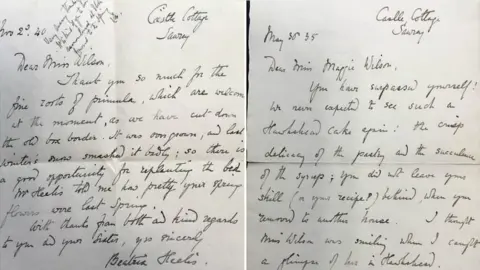 Castle Cottage
Sawrey
Nov 2nd. 40
Dear Miss Wilson,
Thank you so much for the
fine roots of primula, which are welcome
at the moment, as we have cut down
the old box border. It was overgrown; and last
winter's snow smashed it badly; so there is
a good opportunity for replanting the bed
Mr Heelis told me how pretty your spring
flowers were last Spring.
With thanks from both and kind regards
to you and your sister, yrs sincerely
Beatrix Heelis.
Castle Cottage
Sawrey
May 25 35
Dear Miss Maggie Wilson,
You have surpassed yourself!
We never expected to see such a
Hawkshead cake again: the crisp
delicacy of the pastry and the succulence
of the syrups; you did not leave your
skill (or your recipe?) behind when you
removed to another house. I thought
Miss Wilson was smiling when I caught
a glimpse of her in Hawkshead.